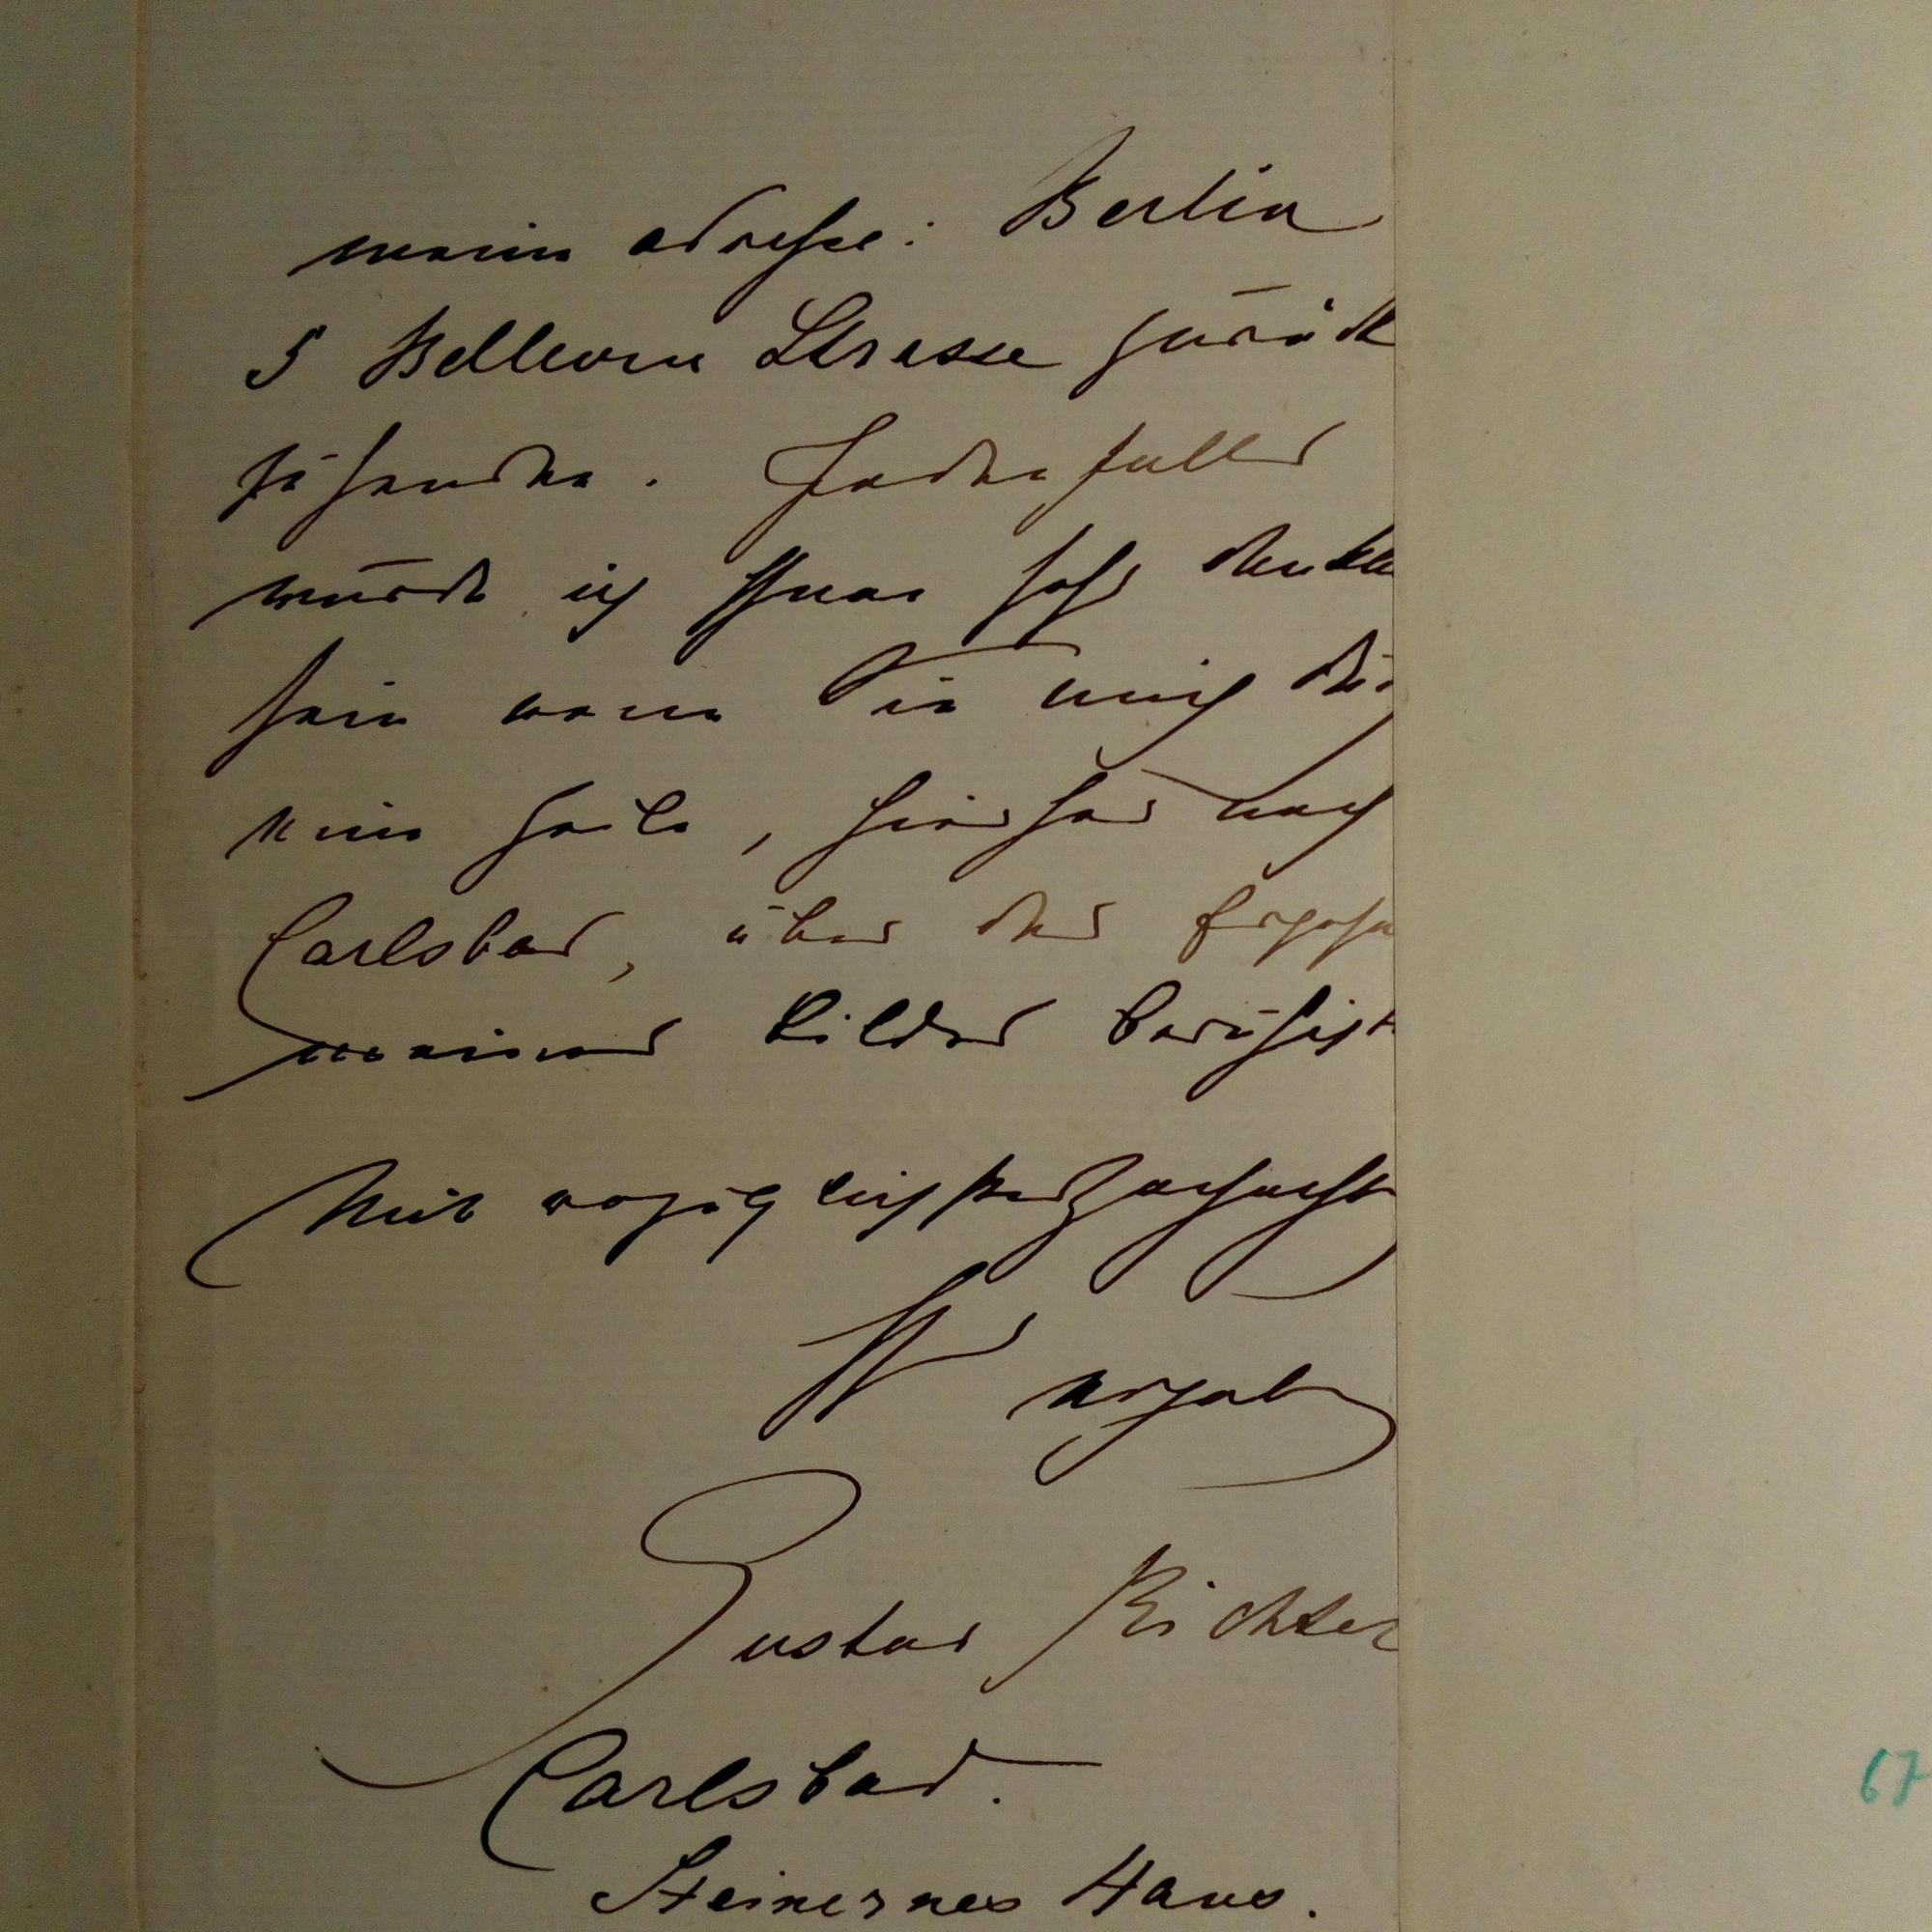 meine Adresse: Berlin
5 Bellevue Strasse zurück
zu senden. Jedenfalls
würde ich Ihnen sehr dankba
sein wenn Sie mich dur
eine Zeile, hierher nach
Carlsbad, über das Ergehen
meiner Bilder beruhigt
Mit vorzüglichster Hochacht
Ihr ergeb
Gustav Richter
Carlsbad.
Steinernes Haus.
67